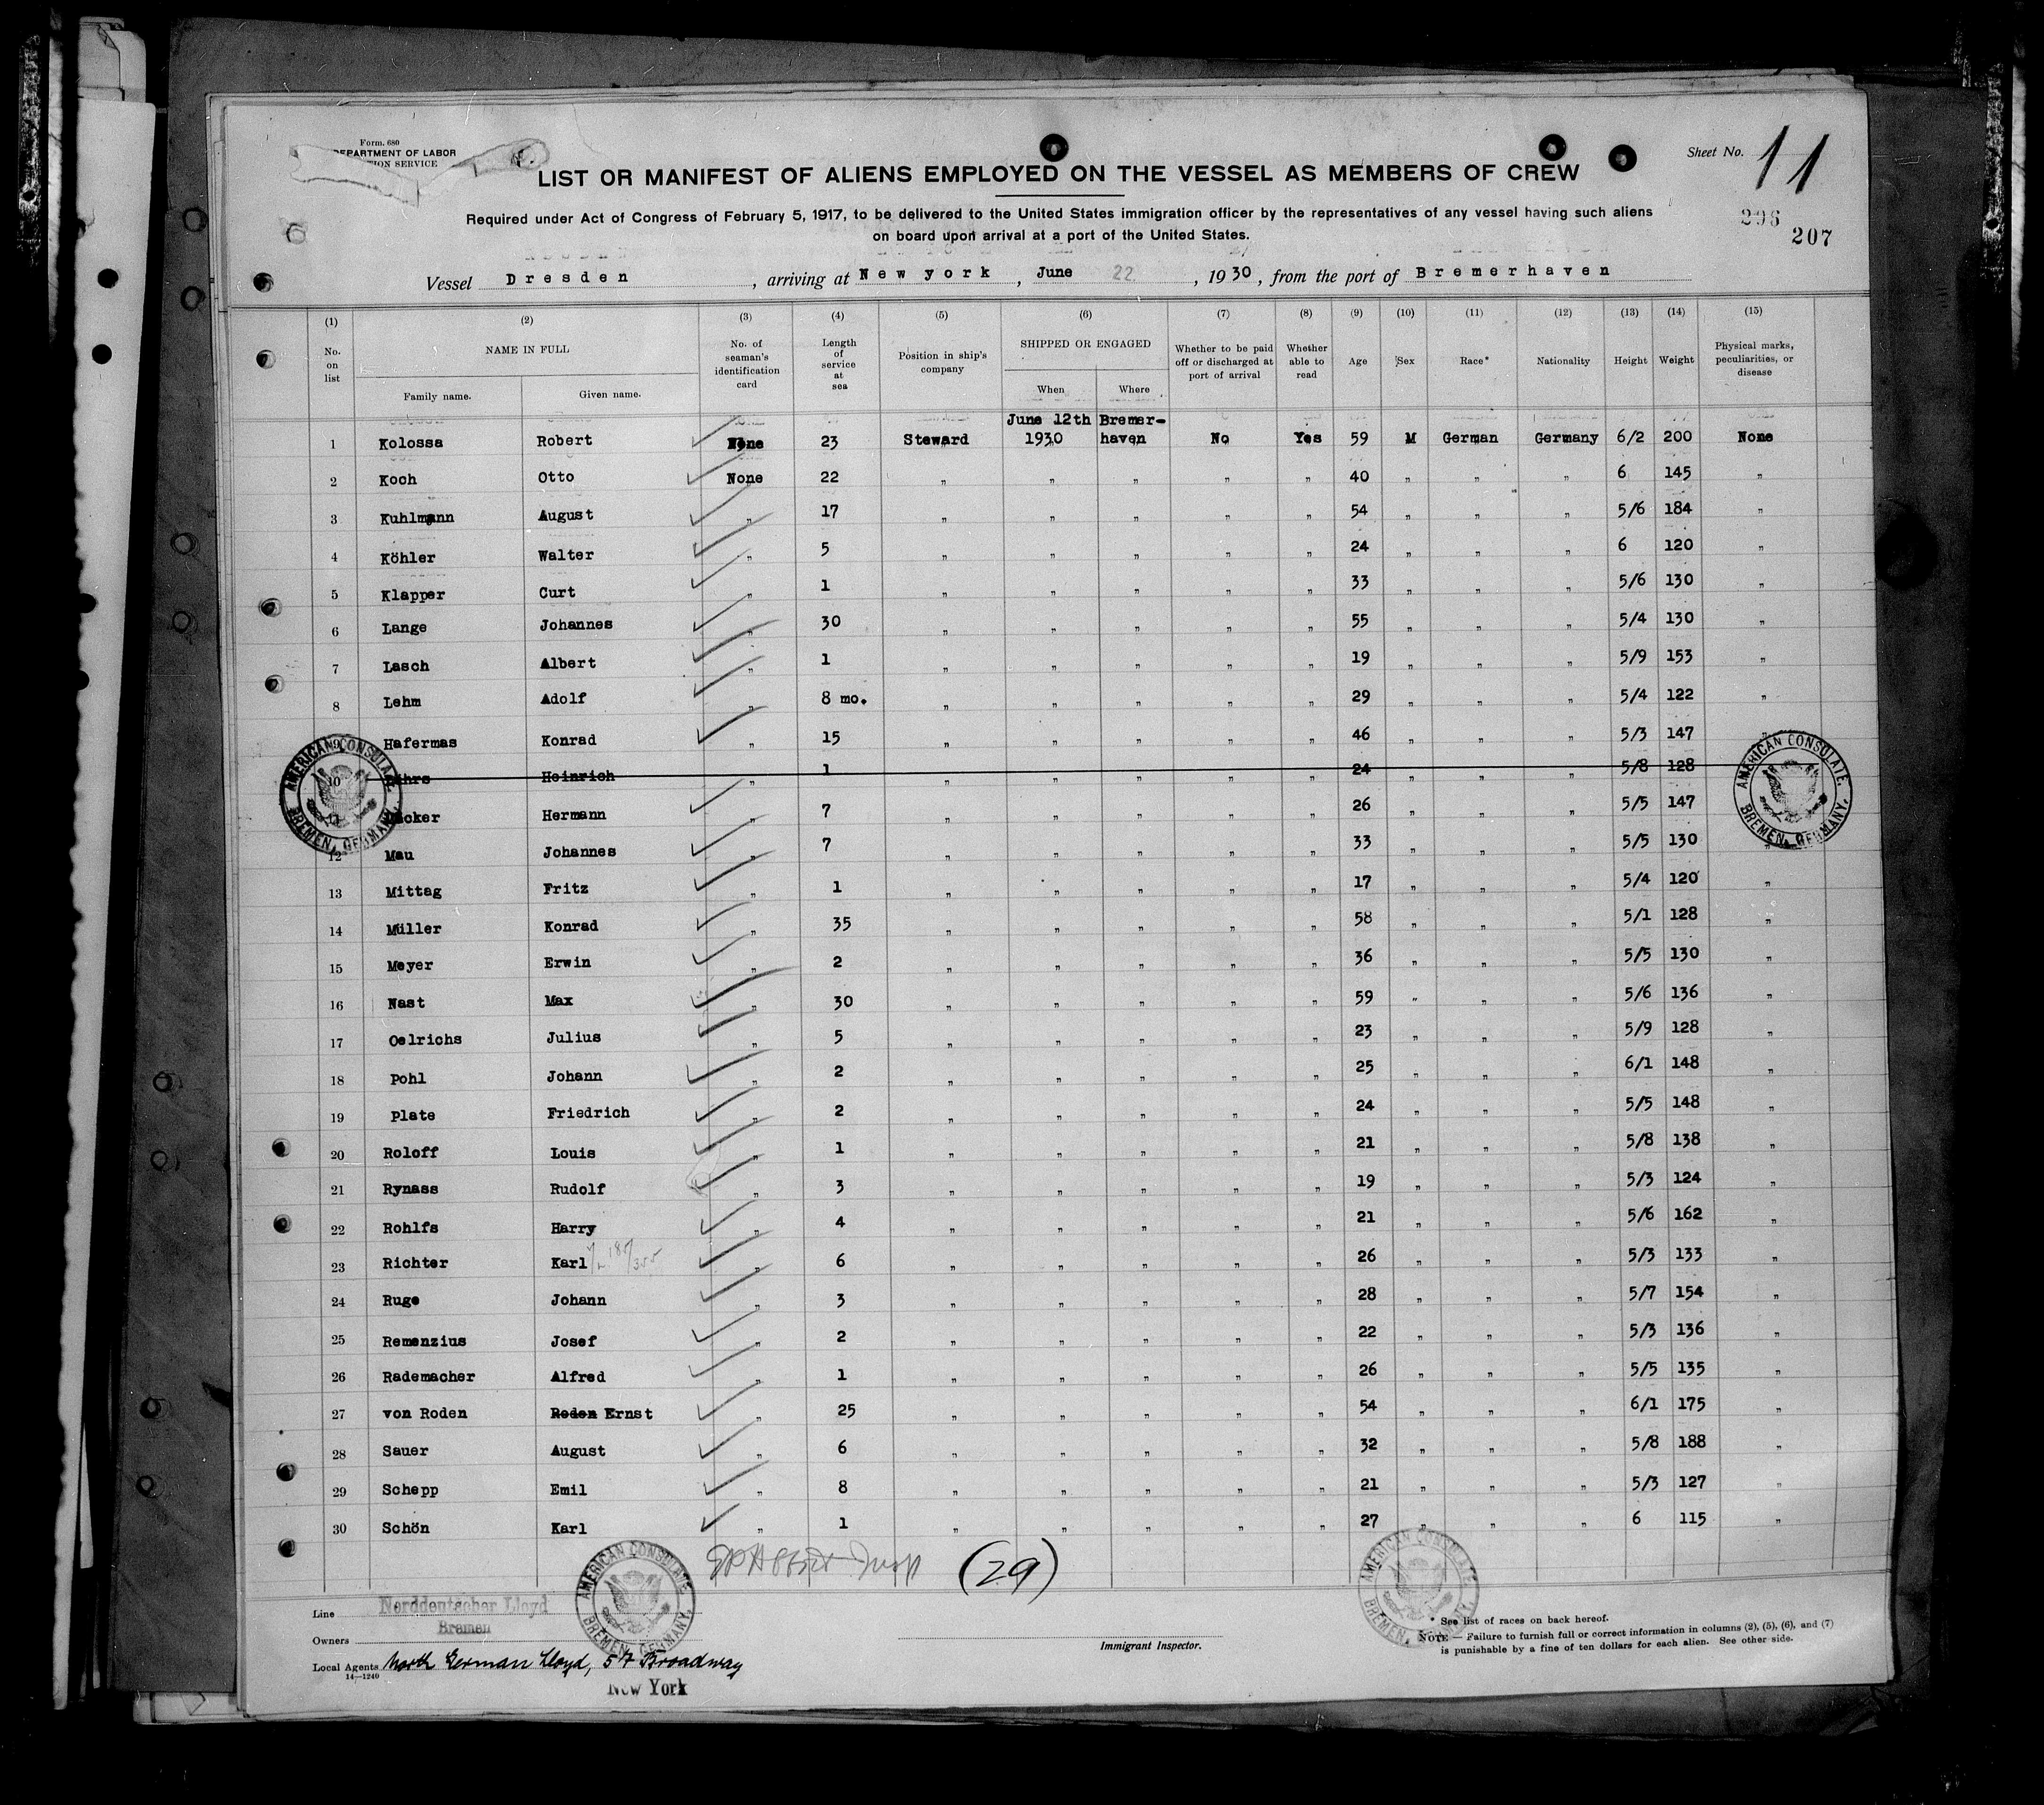 Form. 680
DEPARTMENT OF LABOR
SERVICE
Sheet No. 11
LIST OR MANIFEST OF ALIENS EMPLOYED ON THE VESSEL AS MEMBERS OF CREW
Required under Act of Congress of February 5, 1917, to be delivered to the United States immigration officer by the representatives of any vessel having such aliens
on board upon arrival at a port of the United States.
296
207
Vessel Dresden, arriving at New york, June 22, 1930, from the port of Bremerhaven
(1) (2) (3) (4) (5) (6) (7) (8) (9) (10) (11) (12) (13) (14) (15)
No. on list
NAME IN FULL
Family name. Given name.
No. of seaman's identification card
Length of service at sea
Position in ship's company
SHIPPED OR ENGAGED
When Where
Whether to be paid off or discharged at port of arrival
Whether able to read
Age
Sex
Race*
Nationality
Height
Weight
Physical marks, peculiarities, or disease
June 12th Bremer-
1 Kolossa Robert None 23 Steward 1930 haven No Yes 59 M German Germany 6/2 200 None
2 Koch Otto None 22 " " " " " 40 " " " 6 145 "
3 Kuhlmann August " 17 " " " " " 54 " " " 5/6 184 "
4 Köhler Walter " 5 " " " " " 24 " " " 6 120 "
5 Klapper Curt " 1 " " " " " 33 " " " 5/6 130 "
6 Lange Johannes " 30 " " " " " 55 " " " 5/4 130 "
7 Lasch Albert " 1 " " " " " 19 " " " 5/9 153 "
8 Lehm Adolf " 8 mo. " " " " " 29 " " " 5/4 122 "
9 Hafermas Konrad " 15 " " " " " 46 " " " 5/3 147 "
10 Heinrich " 1 " " " " " 24 " " " 5/8 128
Hermann " 7 " " " " " 26 " " " 5/5 147
12 Mau Johannes " 7 " " " " " 33 " " " 5/5 130 "
13 Mittag Fritz " 1 " " " " " 17 " " " 5/4 120 "
14 Müller Konrad " 35 " " " " " 58 " " " 5/1 128 "
15 Meyer Erwin " 2 " " " " " 36 " " " 5/5 130 "
16 Nast Max " 30 " " " " " 59 " " " 5/6 136 "
17 Oelrichs Julius " 5 " " " " " 23 " " " 5/9 128 "
18 Pohl Johann " 2 " " " " " 25 " " " 6/1 148 "
19 Plate Friedrich " 2 " " " " " 24 " " " 5/5 148 "
20 Roloff Louis " 1 " " " " " 21 " " " 5/8 138 "
21 Rynass Rudolf " 3 " " " " " 19 " " " 5/3 124 "
22 Rohlfs Harry " 4 " " " " " 21 " " " 5/6 162 "
23 Richter Karl " 6 " " " " " 26 " " " 5/3 133 "
24 Ruge Johann " 3 " " " " " 28 " " " 5/7 154 "
25 Remenzius Josef " 2 " " " " " 22 " " " 5/3 136 "
26 Rademacher Alfred " 1 " " " " " 26 " " " 5/5 135 "
27 von Roden Roden Ernst " 25 " " " " " 54 " " " 6/1 175 "
28 Sauer August " 6 " " " " " 32 " " " 5/8 188 "
29 Schepp Emil " 8 " " " " " 21 " " " 5/3 127 "
30 Schön Karl " 1 " " " " " 27 " " " 6 115 "
AMERICAN CONSULATE, BREMEN, GERMANY.
AMERICAN CONSULATE, BREMEN, GERMANY.
AMERICAN CONSULATE, BREMEN, GERMANY.
AMERICAN CONSULATE, BREMEN, GERMANY.
(29)
Line Norddeutscher Lloyd
Bremen
Owners
Local Agents North German Lloyd, 57 Broadway
14—1240
New York
Immigrant Inspector.
* See list of races on back hereof.
NOTE — Failure to furnish full or correct information in columns (2), (5), (6), and (7)
is punishable by a fine of ten dollars for each alien. See other side.